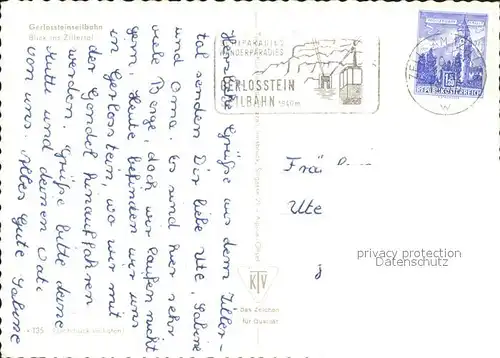 Gerlossteinseilbahn
Blick ins Zillertal
Herzliche Grüße aus dem Ziller-
tal senden Dir liebe Ute, Sabine
und Oma. Es sind hier sehr
viele Berge, doch wir laufen nicht
gern. Heute befinden wir uns
in Gerlosstein, wo wir mit
der Gondel hinauffahren
werden. Grüße bitte deine
Mutti und deinen Vati
von uns. Alles Gute Sabine
SKIPARADIES
WANDERPARADIES
GERLOSSTEIN
SEILBAHN 1940m
ZELL AM
REPUBLIK ÖSTERREICH
Frä
Ute
KTV
Das Zeichen
für Qualität
privacy protection
Datenschutz